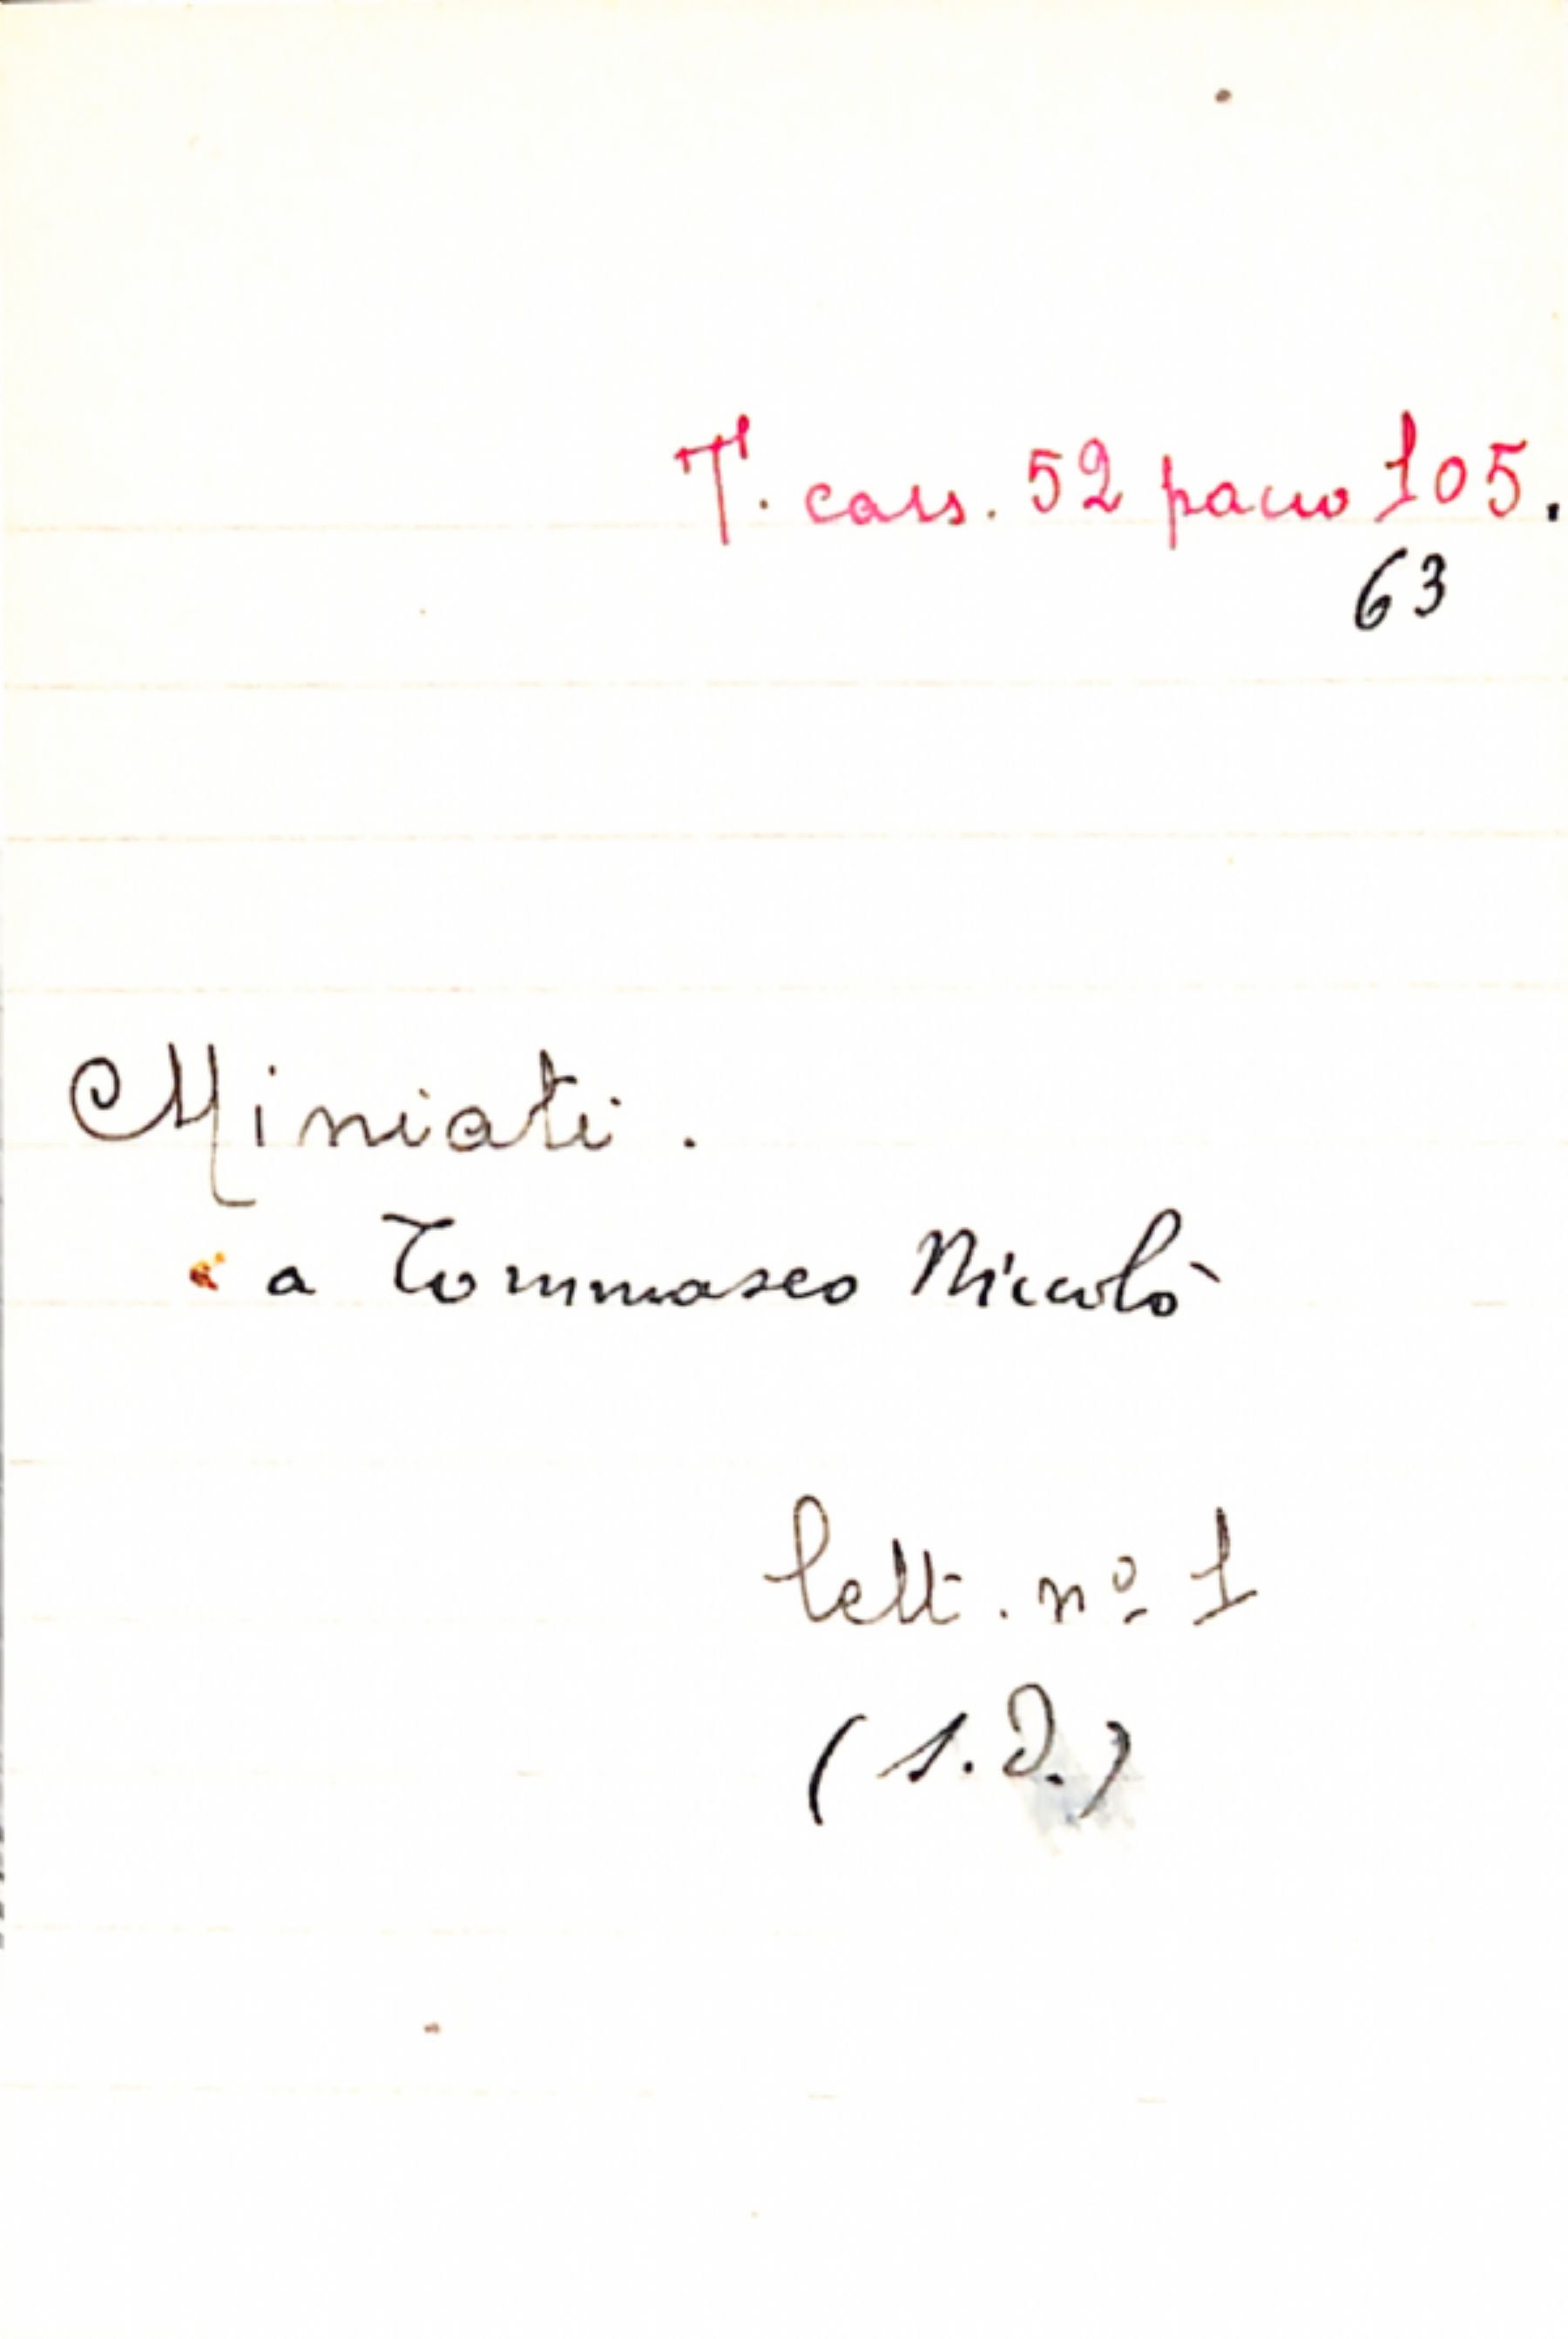 T. cass. 52 pacco 105.
63
Miniati.
a Tommaseo Niccolò
lett. nº 1
(s.d.)